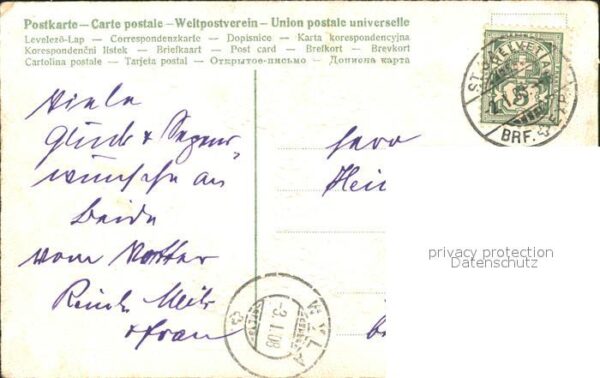 Postkarte – Carte postale – Weltpostverein – Union postale universelle
Levelező-Lap — Correspondenzkarte — Dopisnice — Karta korespondencyjna
Korespondenční lístek — Briefkaart — Post card — Brefkort — Brevkort
Cartolina postale — Tarjeta postal — Открытое-письмо — Дописна карта
HELVETIA
5
BRF.
Viele
Glück & Segens
wünsche an
Beide
vom Vetter
& Frau
Herr
Hei
WYLA
-3.I.08
privacy protection
Datenschutz